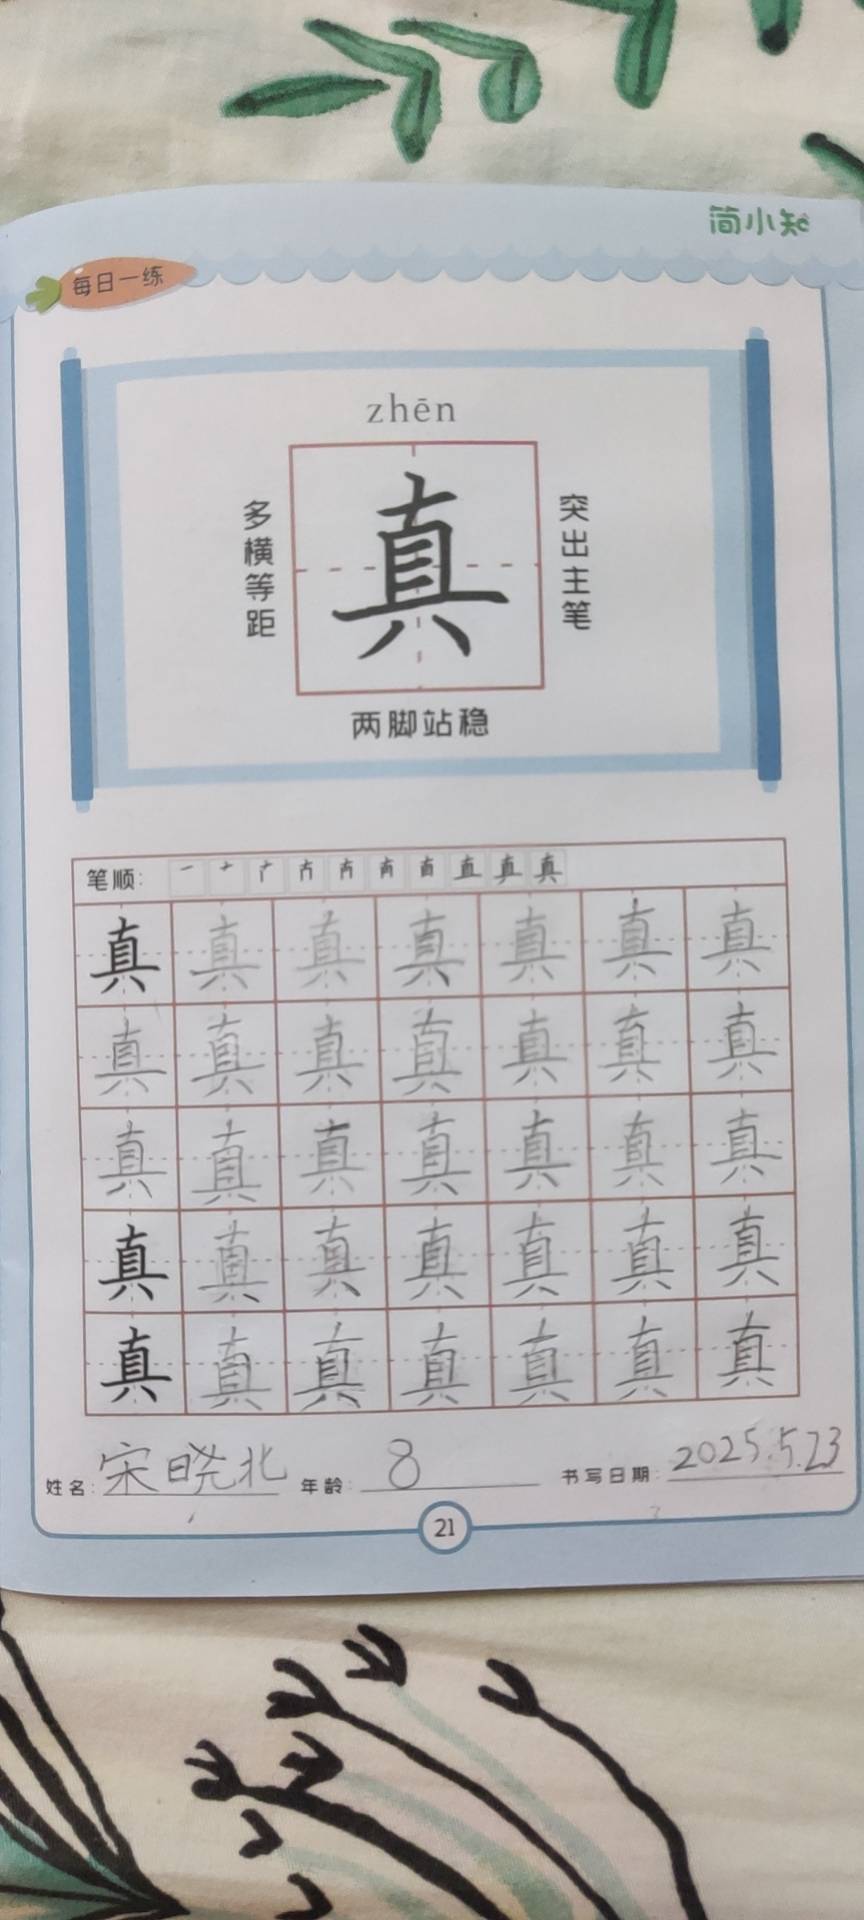 简小知
每日一练
zhēn
多横等距
真
突出主笔
两脚站稳
笔顺:
真 真 真 真 真 真 真
真 真 真 真 真 真 真
真 真 真 真 真 真 真
真 真 真 真 真 真 真
真 真 真 真 真 真 真
姓名: 宋晓北 年龄: 8 书写日期: 2025.5.23
21